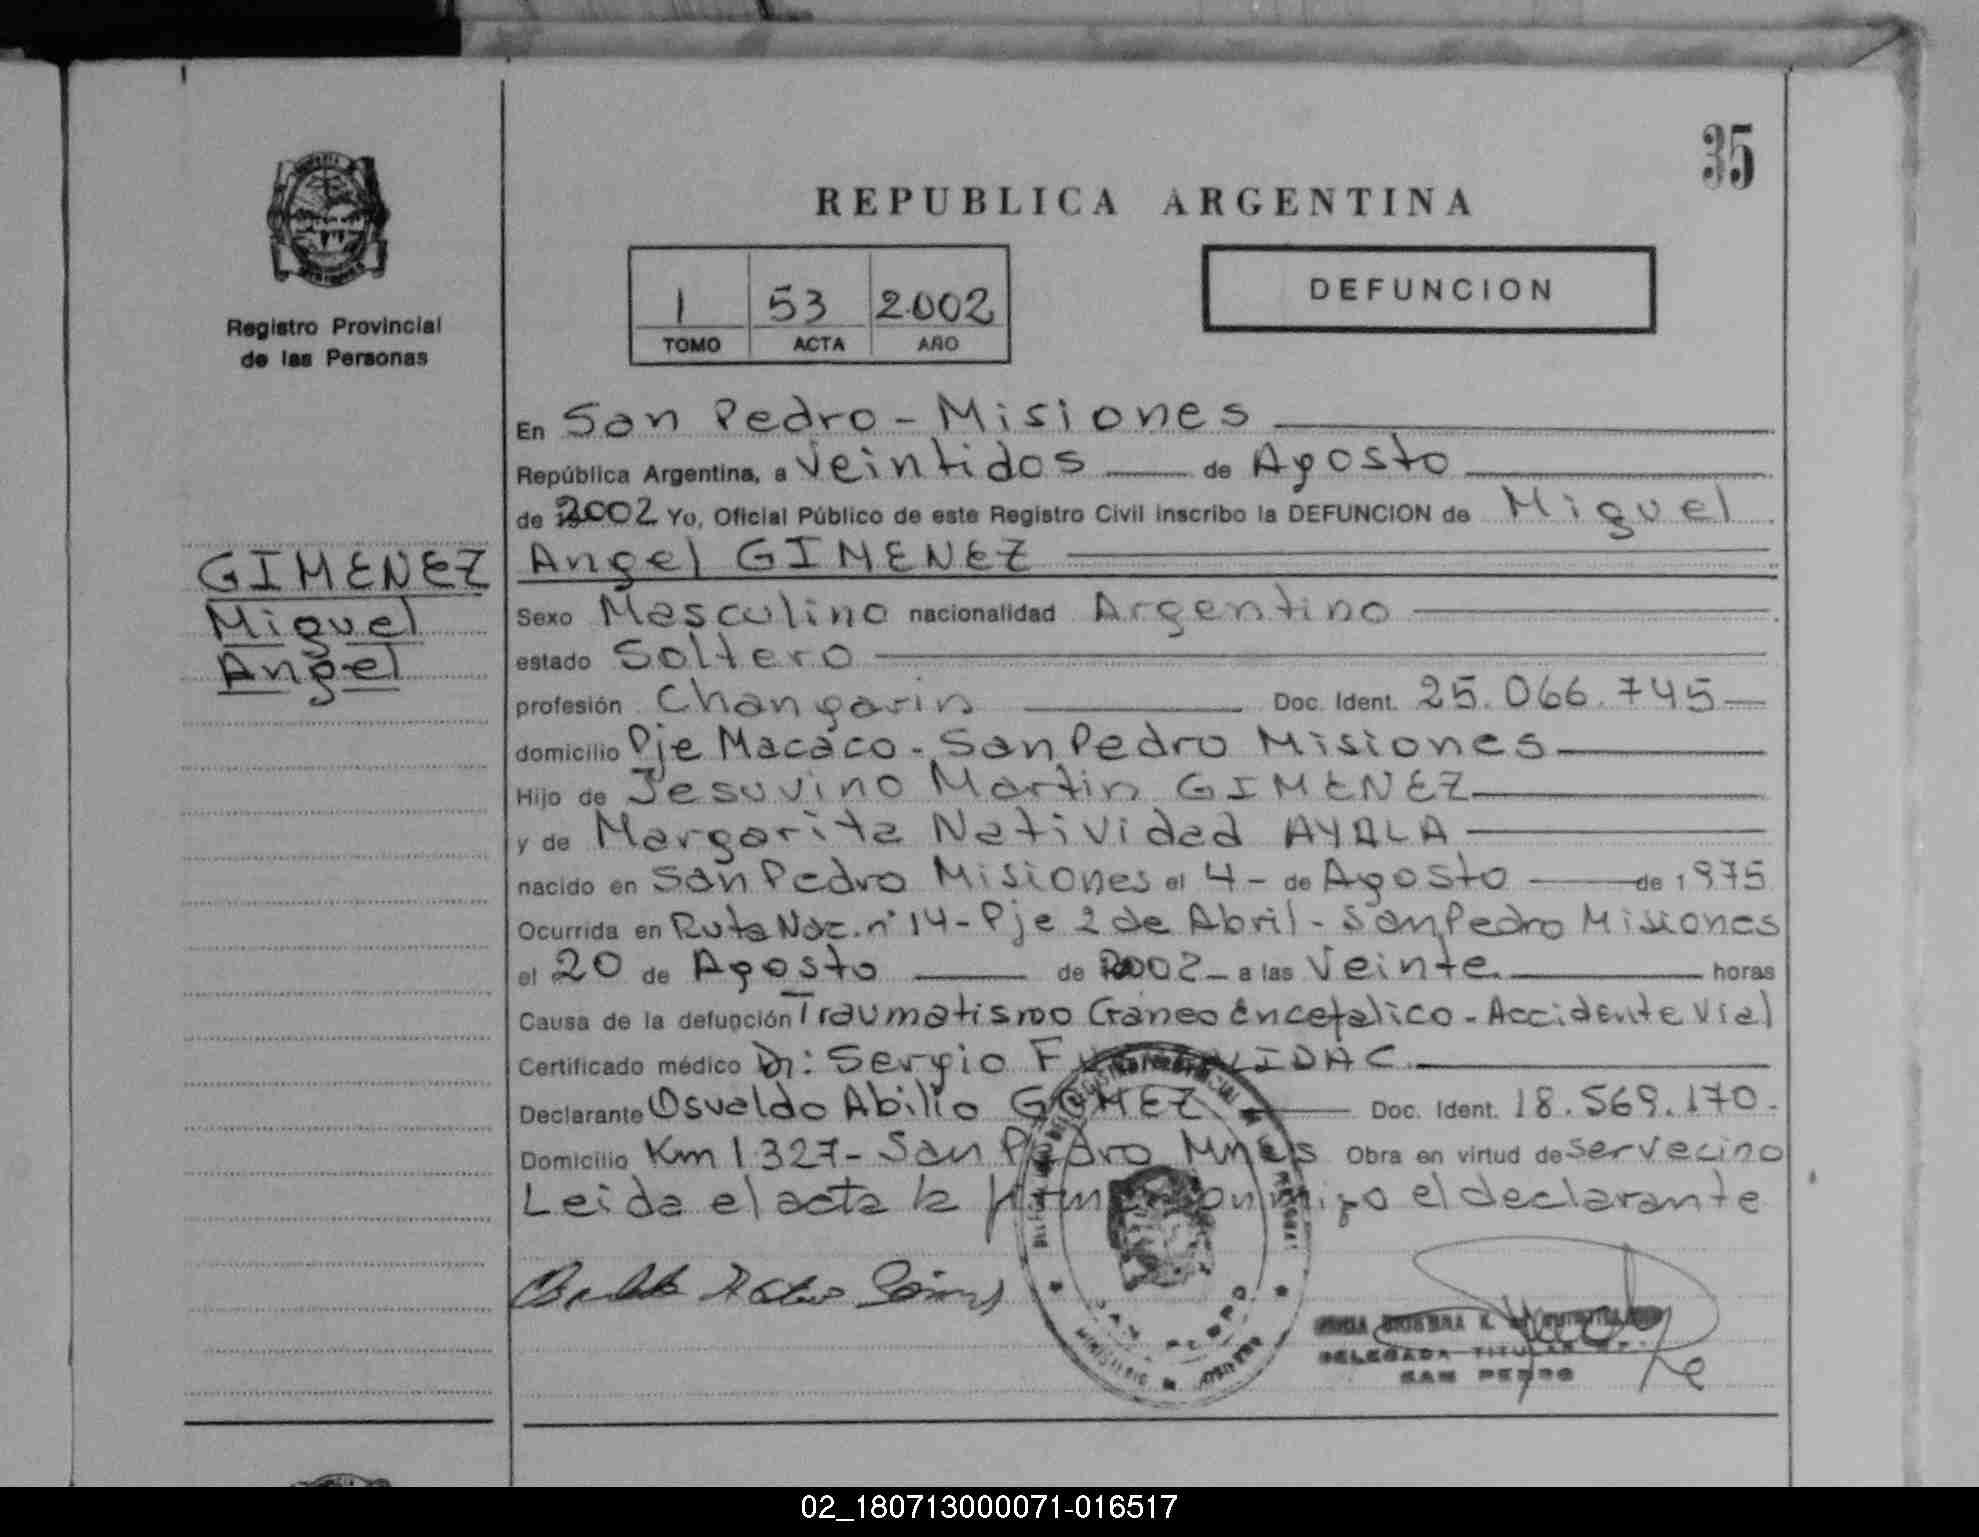 35
REPUBLICA ARGENTINA
Registro Provincial
de las Personas
1 53 2.002
TOMO ACTA AÑO
DEFUNCION
GIMENEZ
Miguel
Angel
En San Pedro - Misiones
República Argentina, a Veintidos de Agosto
de 2002 Yo, Oficial Público de este Registro Civil inscribo la DEFUNCION de Miguel
Angel GIMENEZ
Sexo Masculino nacionalidad Argentino
estado Soltero
profesión Changarin Doc. Ident. 25.066.745
domicilio Pje Macaco - San Pedro Misiones
Hijo de Jesuvino Martin GIMENEZ
y de Margarita Natividad AYALA
nacido en San Pedro Misiones el 4 - de Agosto de 1975
Ocurrida en Ruta Nac. n° 14 - Pje 2 de Abril - San Pedro Misiones
el 20 de Agosto de 2002 - a las Veinte horas
Causa de la defunción Traumatismo Craneo Encefalico - Accidente Vial
Certificado médico Dr: Sergio
Declarante Osvaldo Abilio GOMEZ Doc. Ident. 18.569.170.
Domicilio Km 1.327 - San Pedro Mnes Obra en virtud de ser vecino
Leida el acta la firma conmigo el declarante
DELEGADA TITULAR
SAN PEDRO
02_180713000071-016517